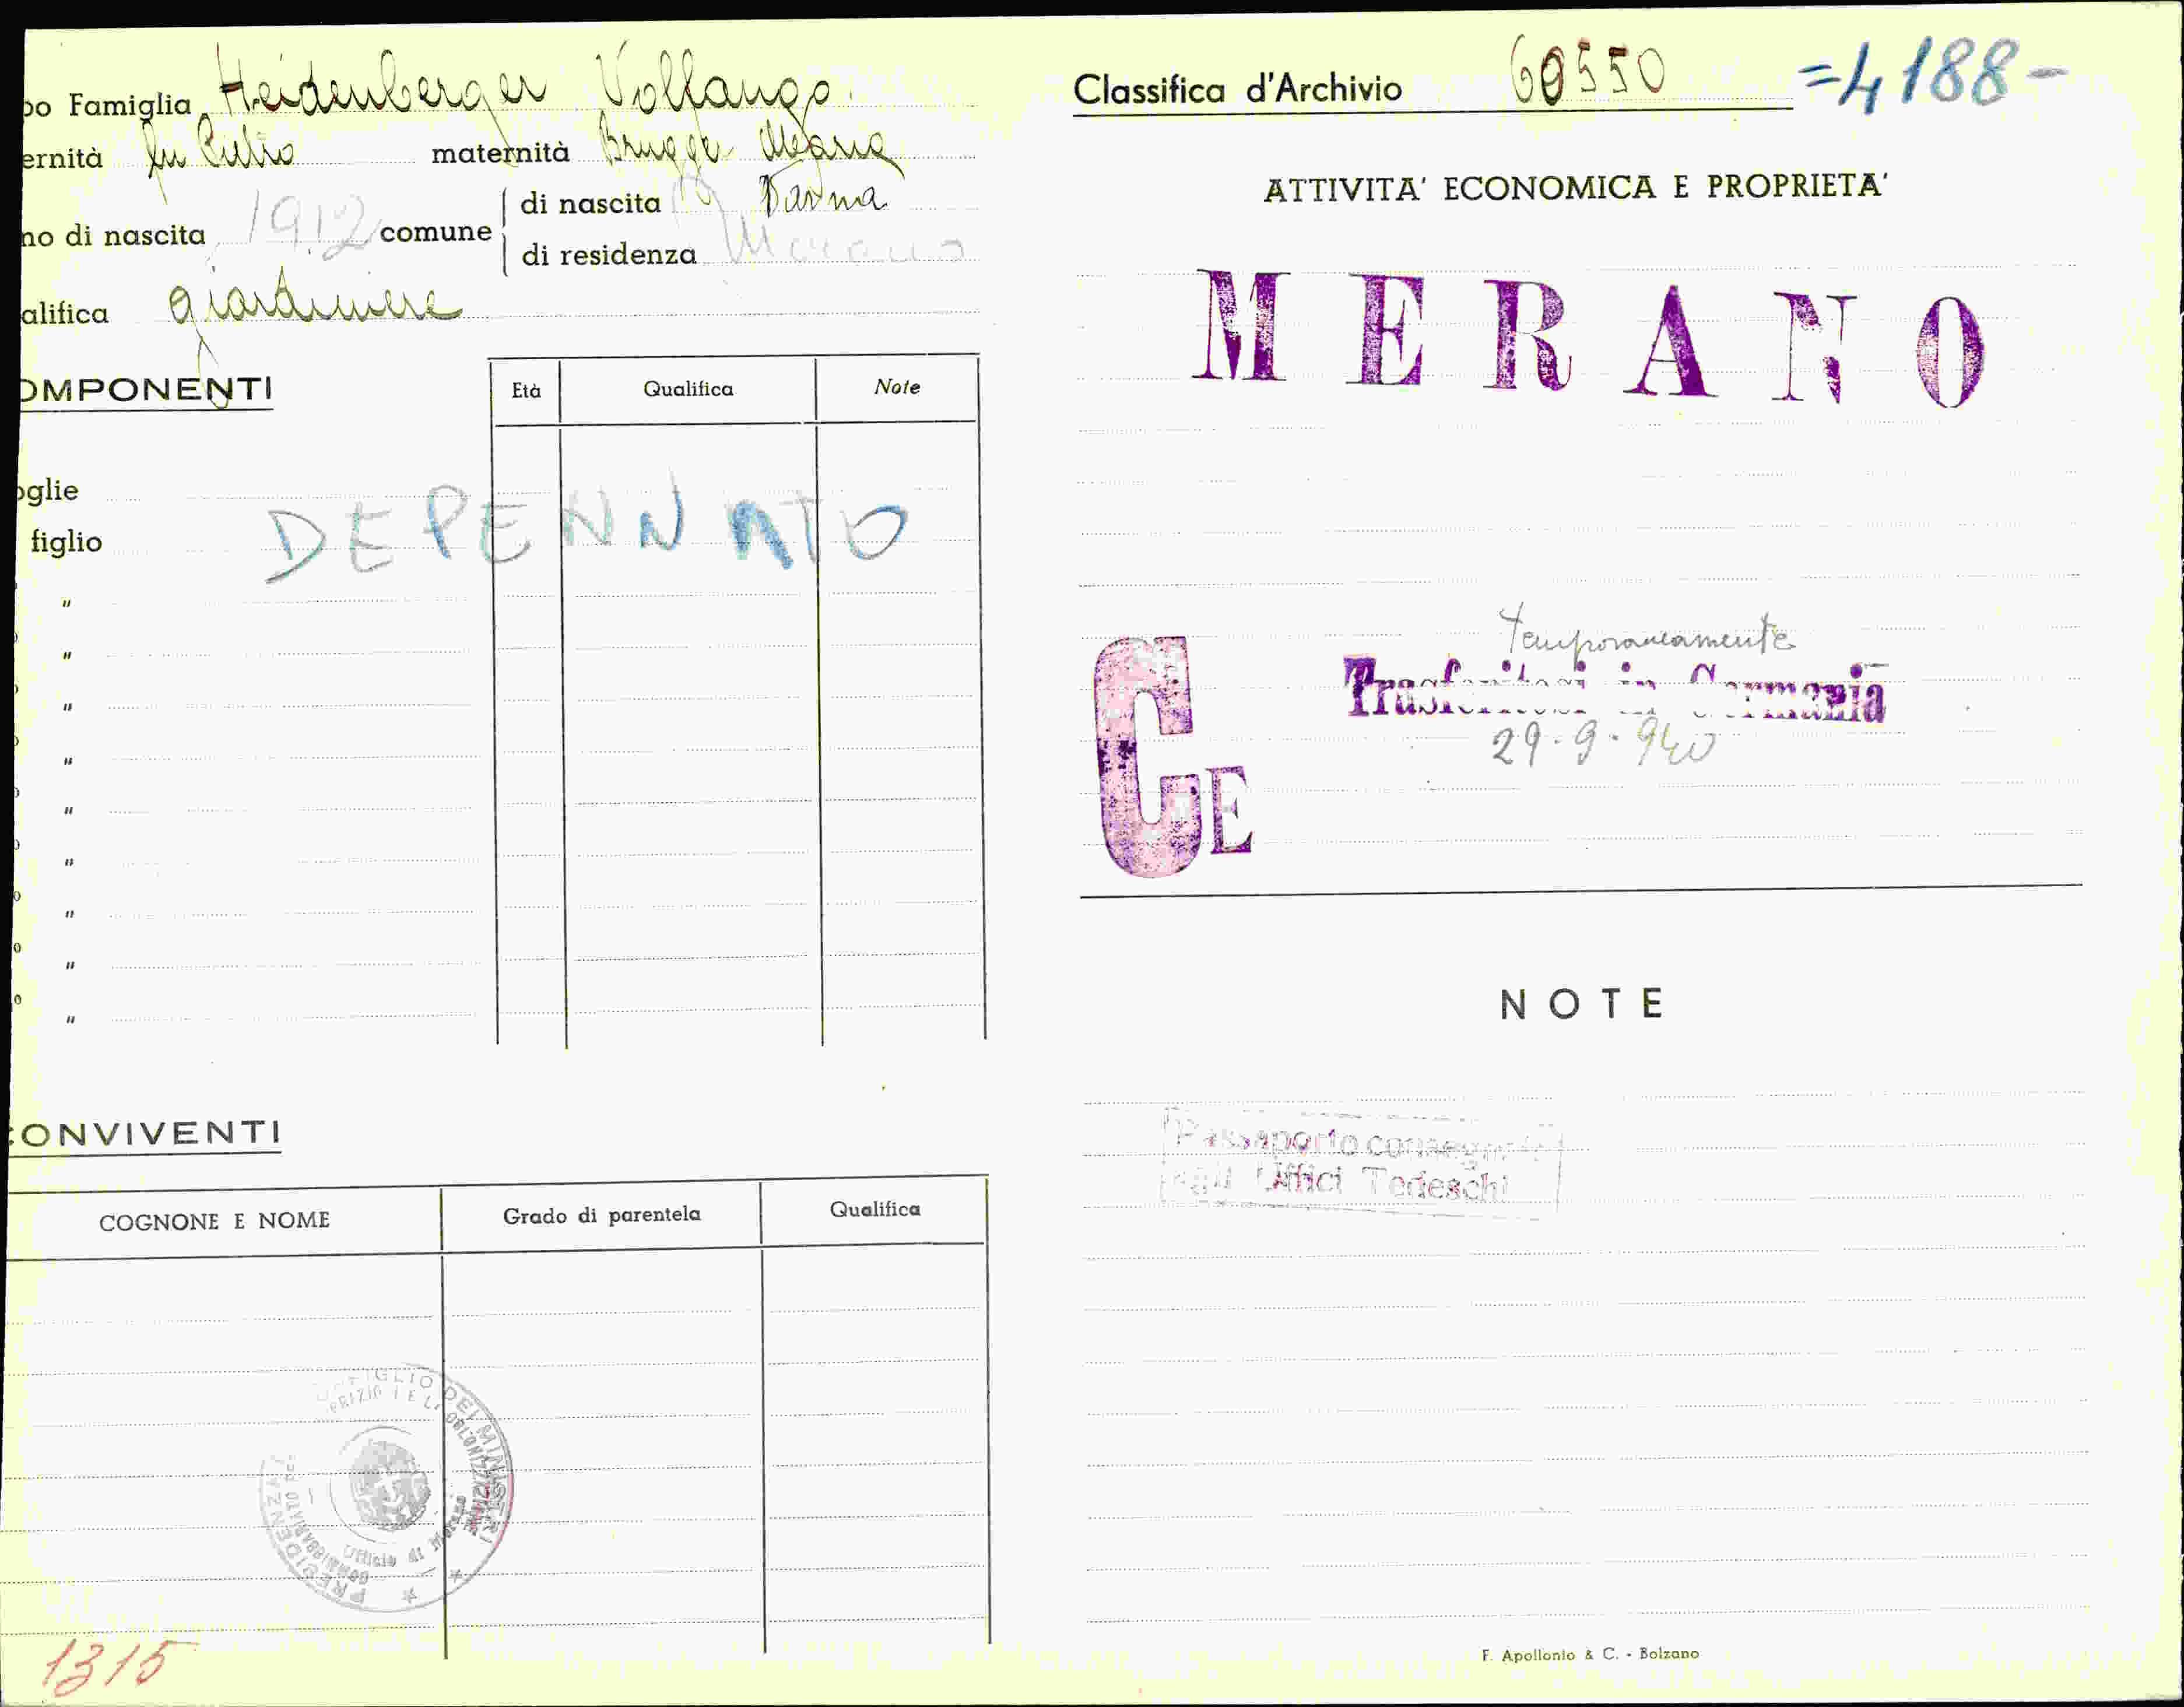 po Famiglia Heidenberger Volfango
ernità fu Giulio maternità Brugger Maria
no di nascita 1912 comune di nascita Parma
di residenza Merano
alifica giardiniere
OMPONENTI
Età Qualifica Note
oglie
figlio
DEPENNATO
"
"
"
"
"
"
"
"
"
CONVIVENTI
COGNONE E NOME Grado di parentela Qualifica
PRESIDENZA CONSIGLIO DEI MINISTRI
Ufficio di
1315
Classifica d'Archivio 60550 =4188-
ATTIVITA' ECONOMICA E PROPRIETA'
MERANO
temporaneamente
Trasferitosi in Germania
29.9.940
CE
NOTE
Passaporto consegnato
agli Uffici Tedeschi
F. Apollonio & C. - Bolzano